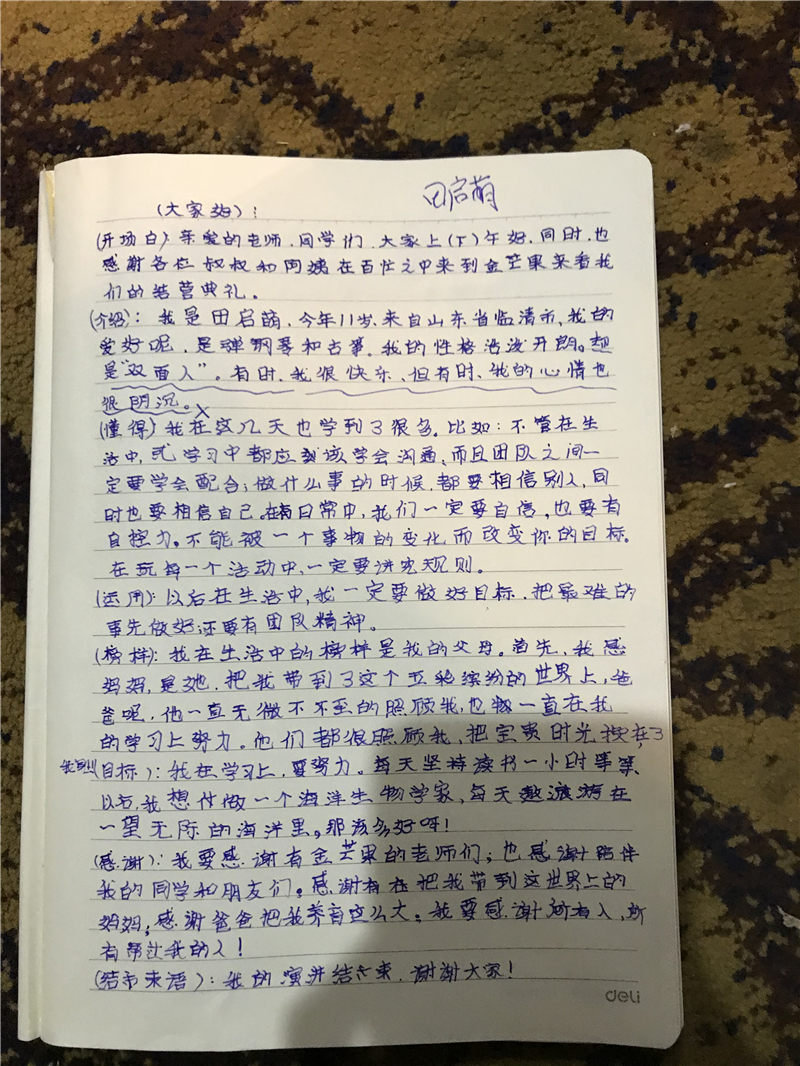 田启萌
(大家好):
(开场白):亲爱的老师、同学们、大家上(下)午好,同时,也
感谢各位叔叔和阿姨在百忙之中来到金芒果来看我
们的结营典礼。
(介绍):我是田启萌,今年11岁,来自山东省临清市,我的
爱好呢,是弹钢琴和古筝。我的性格活泼开朗。想
是“双面人”。有时,我很快乐,但有时,我的心情也
很阴沉。
(懂得)我在这几天也学到了很多。比如:不管在生
活中,或学习中都应该学会沟通,而且团队之间一
定要学会配合;做什么事的时候,都要相信别人,同
时也要相信自己。在日常中,我们一定要自信,也要有
自控力。不能被一个事物的变化而改变你的目标。
在玩每一个活动中,一定要讲究规则。
(运用):以后在生活中,我一定要做好目标,把最难的
事先做好还要有团队精神。
(榜样):我在生活中的榜样是我的父母。首先,我感
妈妈,是她,把我带到了这个五轮缤纷的世界上,爸
爸呢,他一直无微不至的照顾我,也一直在我
的学习上努力。他们都很照顾我,把宝贵时光 在了
我身上
(目标):我在学习上,要努力。每天坚持读书一小时等等,
以后,我想做一个海洋生物学家,每天遨游在
一望无际的海洋里,那该多好呀!
(感谢):我要感谢有金芒果的老师们;也感谢陪伴
我的同学和朋友们。感谢把我带到这世界上的
妈妈,感谢爸爸把我养育这么大。我要感谢所有人,所
有帮过我的人!
(结束来语):我的演讲结束,谢谢大家!
deli